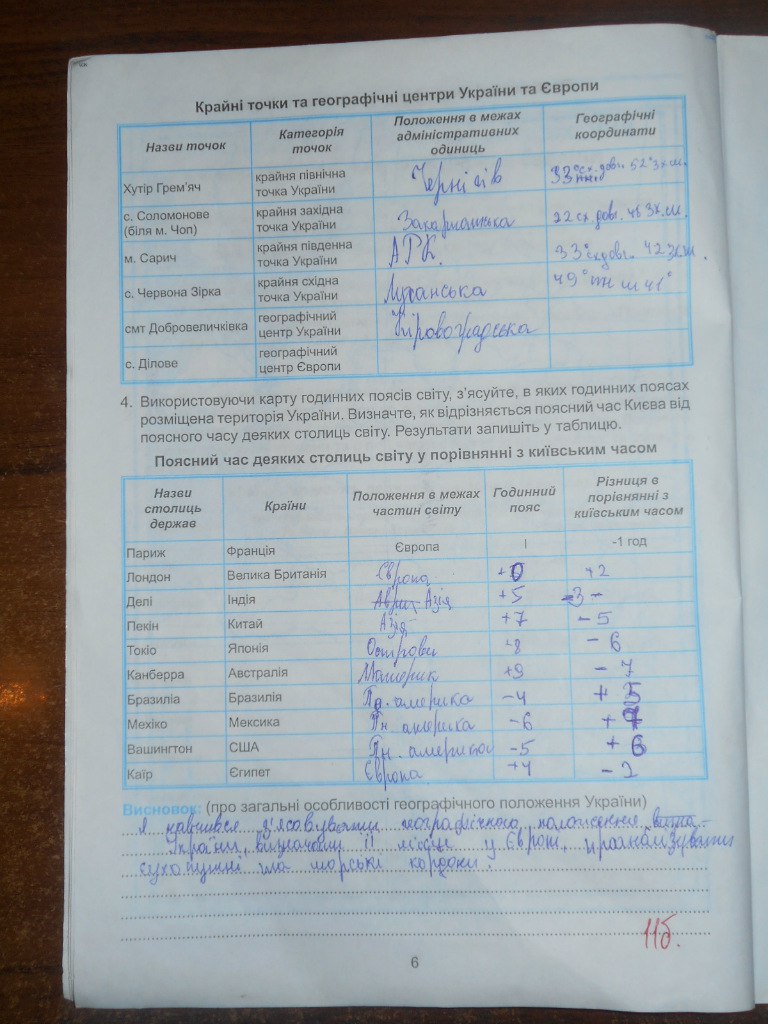 Крайні точки та географічні центри України та Європи
Назви точок Категорія точок Положення в межах адміністративних одиниць Географічні координати
Хутір Грем'яч крайня північна точка України Чернігів 33° сх. довг. 52°
с. Соломонове (біля м. Чоп) крайня західна точка України Закарпатська 22 сх. довг. 48
м. Сарич крайня південна точка України АРК. 33° сх довг.
с. Червона Зірка крайня східна точка України Луганська 49° пн ш 41°
смт Добровеличківка географічний центр України Кіровоградська
с. Ділове географічний центр Європи
4. Використовуючи карту годинних поясів світу, з'ясуйте, в яких годинних поясах
розміщена територія України. Визначте, як відрізняється поясний час Києва від
поясного часу деяких столиць світу. Результати запишіть у таблицю.
Поясний час деяких столиць світу у порівнянні з київським часом
Назви столиць держав Країни Положення в межах частин світу Годинний пояс Різниця в порівнянні з київським часом
Париж Франція Європа I -1 год
Лондон Велика Британія Європа +0 +2
Делі Індія Азія +5 -3-
Пекін Китай Азія +7 -5
Токіо Японія Острови +8 -6
Канберра Австралія Материк +9 -7
Бразиліа Бразилія Пд. америка -4 + 5
Мехіко Мексика Пн америка -6 +
Вашингтон США Пн. америка -5 + 6
Каїр Єгипет Європа +4 -2
Висновок: (про загальні особливості географічного положення України)
Я навчився з'ясовувати географічного положення
України, визначати її місце у Європі, проаналізувати
сухопутні та морські кордони.
11б.
6